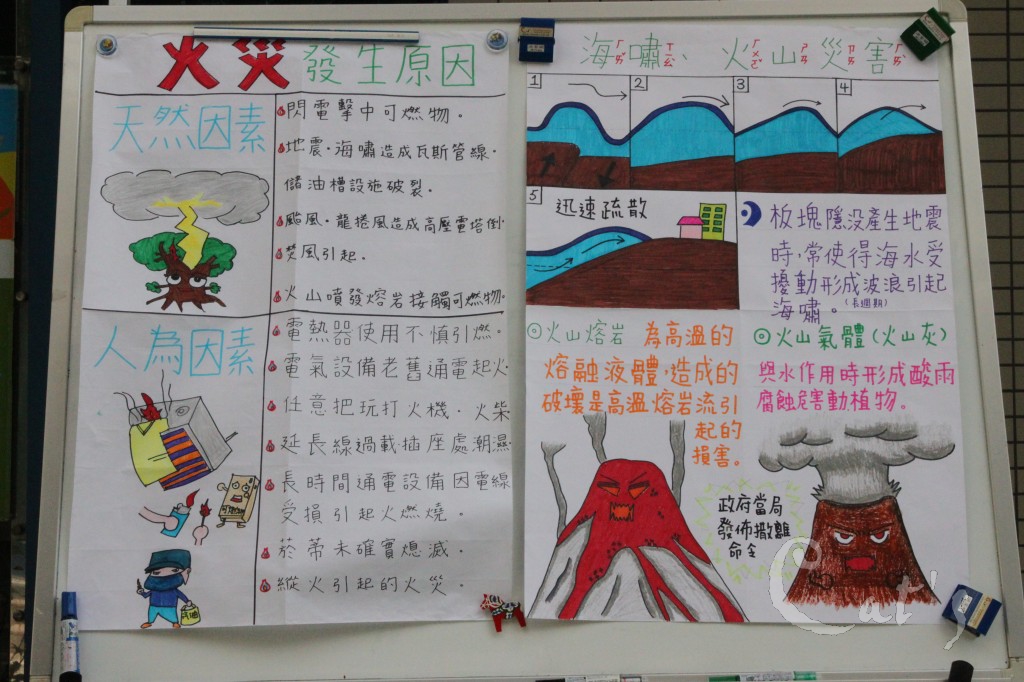 火災發生原因
天然因素
閃電擊中可燃物。
地震,海嘯造成瓦斯管線,
儲油槽設施破裂.
颱風,龍捲風造成高壓電塔倒.
焚風引起.
火山噴發熔岩接觸可燃物.
人為因素
電熱器使用不慎引燃.
電氣設備老舊通電起火
任意把玩打火機.火柴
延長線過載插座處潮濕
長時間通電設備因電線
受損引起火燃燒.
菸蒂未確實熄滅.
縱火引起的火災.
海嘯、火山災害
ㄏㄞˇ ㄒㄧㄠ ㄏㄨㄛˇ ㄕㄢ ㄗㄞ ㄏㄞˋ
1 2 3 4
5 迅速疏散
板塊隱沒產生地震
時,常使得海水受
擾動形成波浪引起
(長週期)
海嘯。
◎火山熔岩 為高溫的
熔融液體,造成的
破壞是高溫熔岩流引
起的
損害。
◎火山氣體(火山灰)
與水作用時形成酸雨
腐蝕危害動植物。
政府當局
發佈撒離
命令
Cat's